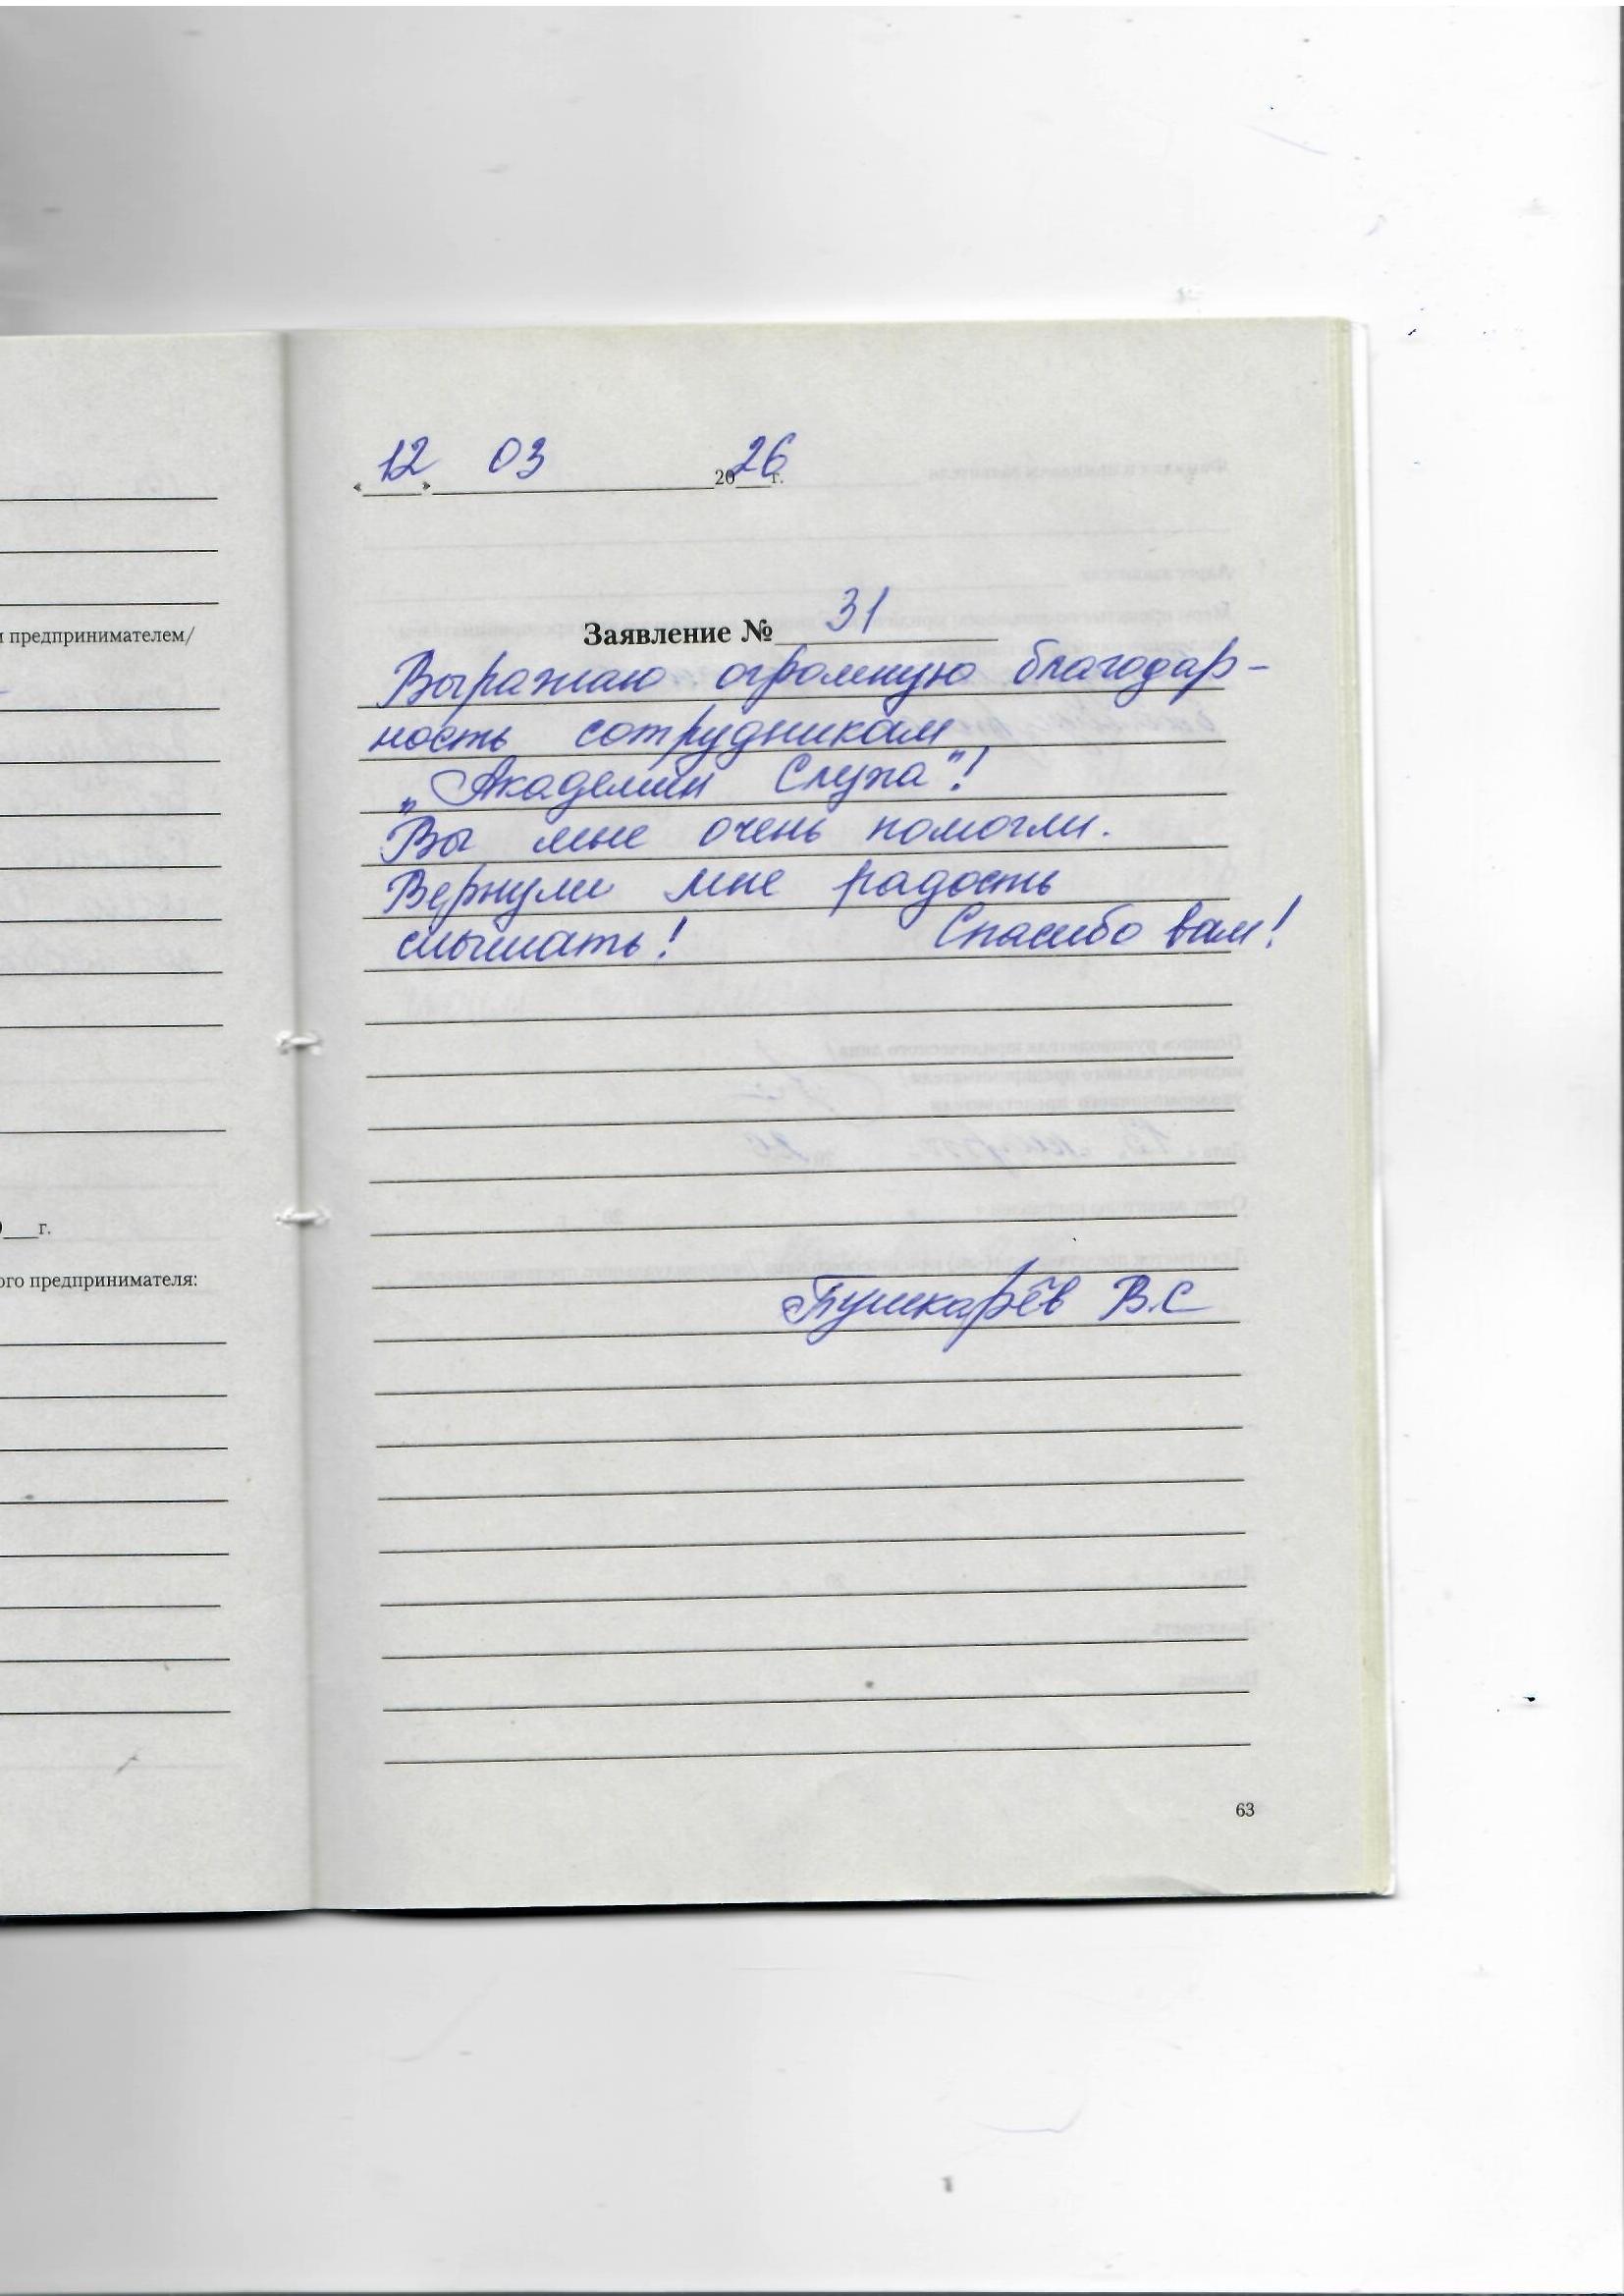 «12» 03 2026 г.
Заявление № 31
Выражаю огромную благодар-
ность сотрудникам
„Академии Слуха"!
Вы мне очень помогли.
Вернули мне радость
слышать! Спасибо вам!
Пушкарёв В.С
63
и предпринимателем/
г.
ого предпринимателя: